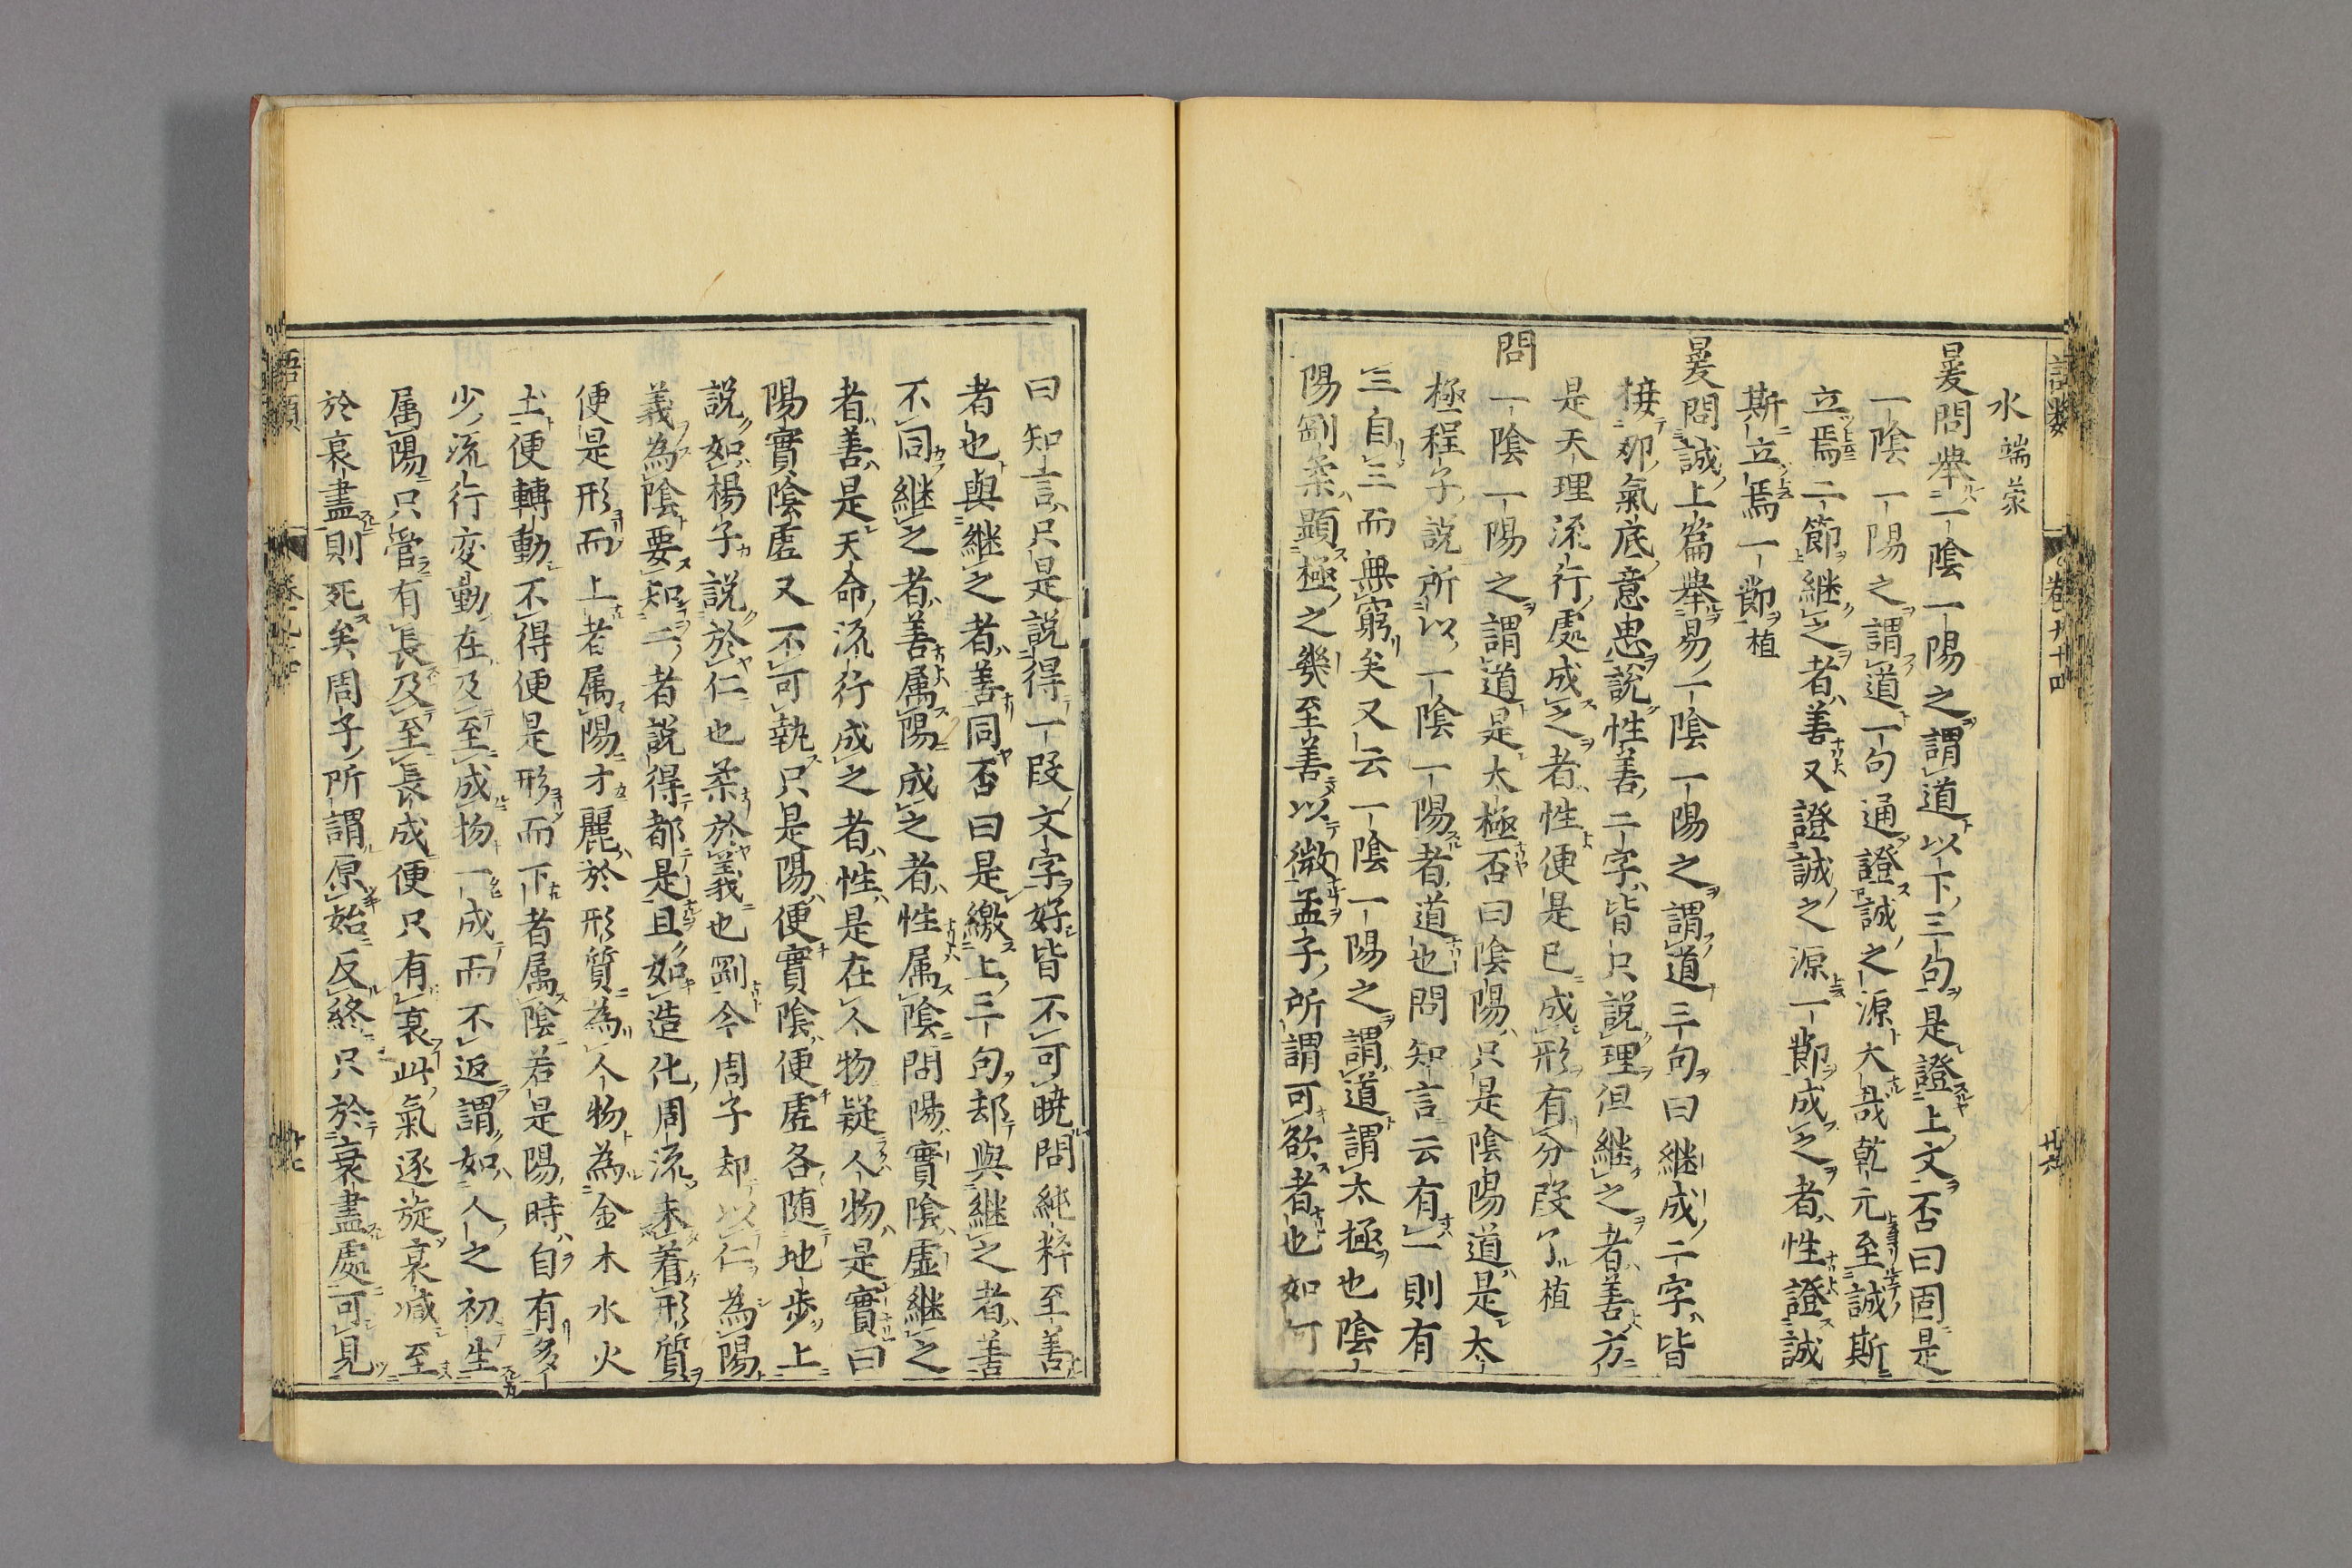 語類 卷九十四 廿六
水端蒙
㬊問舉一陰一陽之謂道以下三句是證上文否曰固是
一陰一陽之謂道一句通證誠之源大哉乾元至誠斯
立焉二節継之者善又證誠之源一節成之者性證誠
斯立焉一節植
㬊問誠上篇舉易一陰一陽之謂道三句曰継成二字皆
接那氣底意思說性善二字皆只說理但継之者善方
是天理流行處成之者性便是已成形有分叚了植
問一陰一陽之謂道是太極否曰陰陽只是陰陽道是太
極程子說所以一陰一陽者道也問知言云有一則有
三自三而無窮矣又云一陰一陽之謂道謂太極也陰
陽剛柔顯極之幾至善以微孟子所謂可欲者也如何
曰知言只是說得一叚文字好皆不可曉問純粹至善
者也與継之者善同否曰是繳上三句却與継之者善
不同継之者善属陽成之者性属陰問陽實陰虛継之
者善是天命流行成之者性是在人物疑人物是實曰
陽實陰虛又不可執只是陽便實陰便虛各随地步上
說如楊子說於仁也柔於義也剛今周子却以仁為陽
義為陰要知二者說得都是且如造化周流未着形質
便是形而上者属陽才麗於形質為人物為金木水火
土便轉動不得便是形而下者属陰若是陽時自有多
少流行变動在及至成物一成而不返謂如人之初生
属陽只管有長及至長成便只有衰此氣逐旋衰减至
於衰盡則死矣周子所謂原始反終只於衰盡處可見
語類